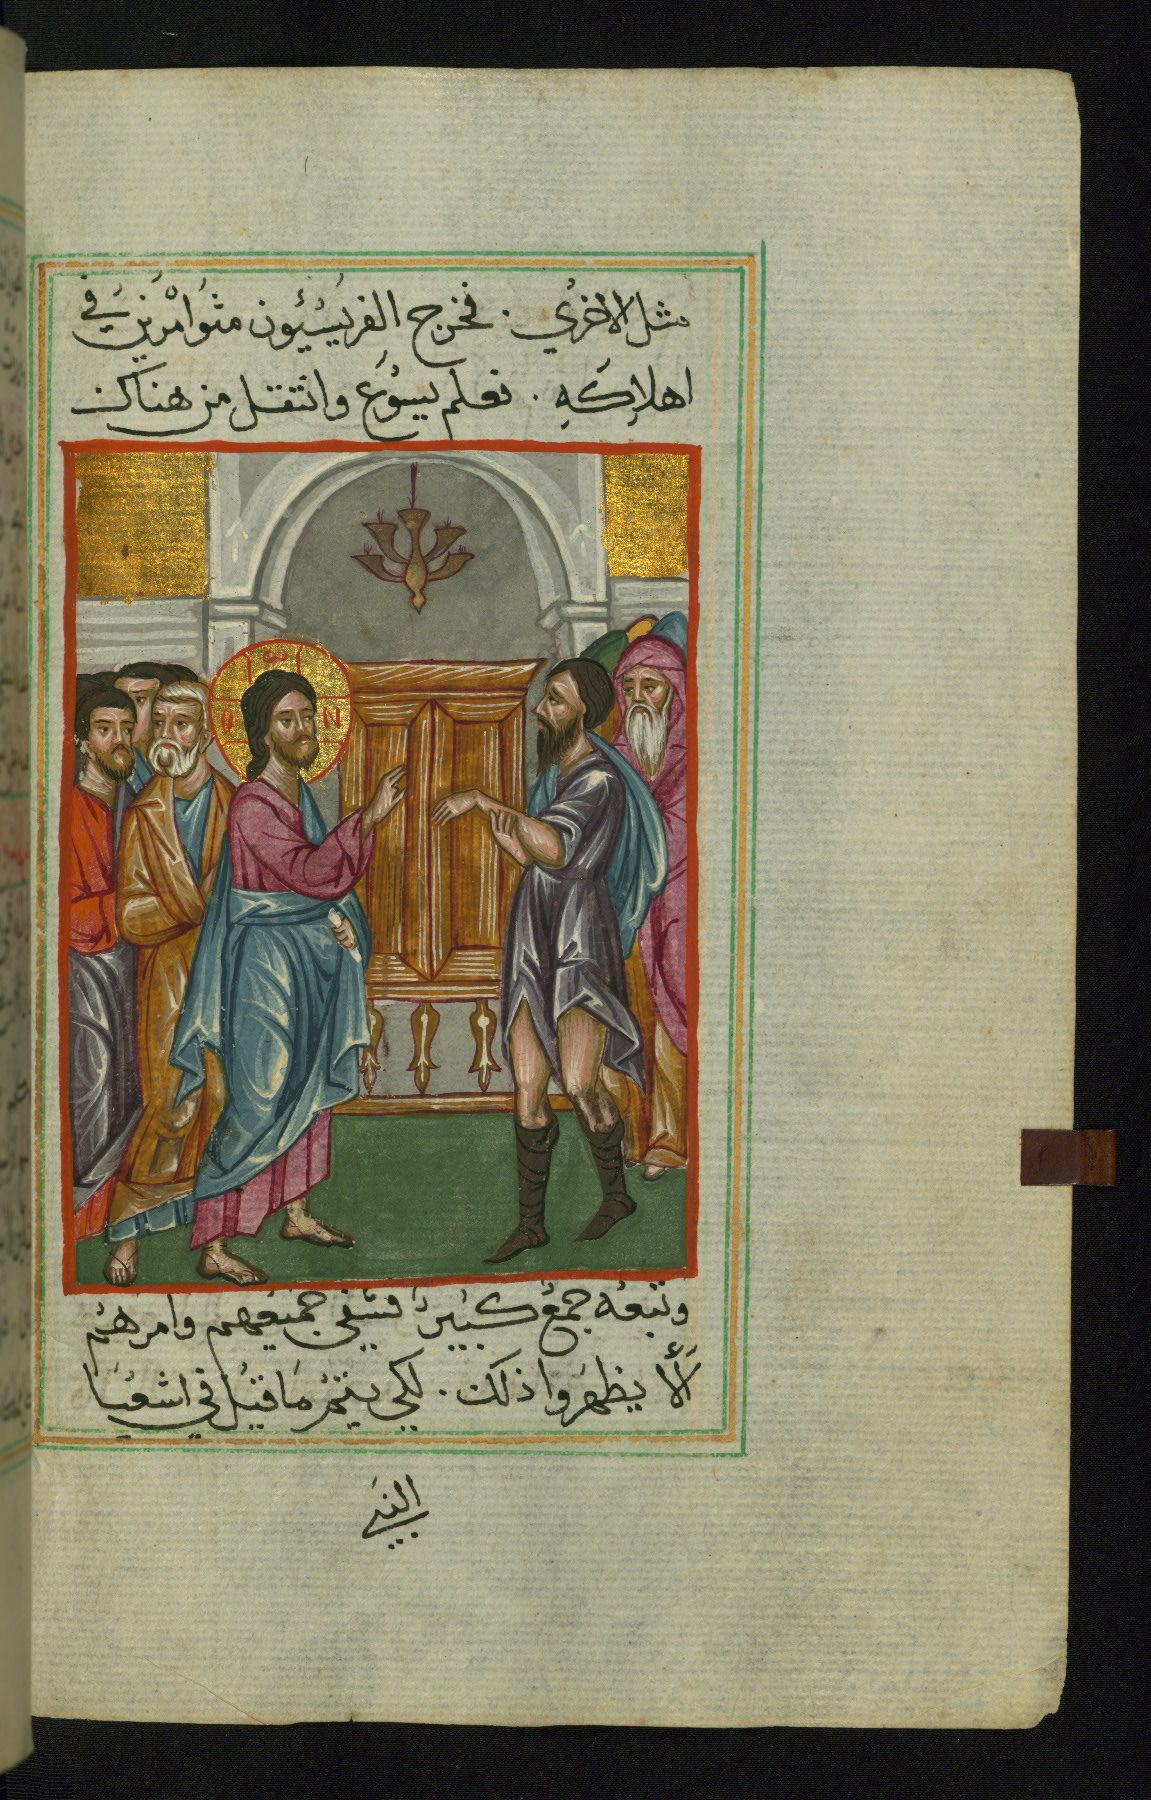 مثل الاخرى. فخرج الفريسيون متوامرين في
اهلاكه. فعلم يسوع وانتقل من هناك
ὁ ὤ Ν
وتبعه جمع كبير فشفى جميعهم وامرهم
ألّا يظهروا ذلك. لكي يتم ما قيل في اشعيا
النبي